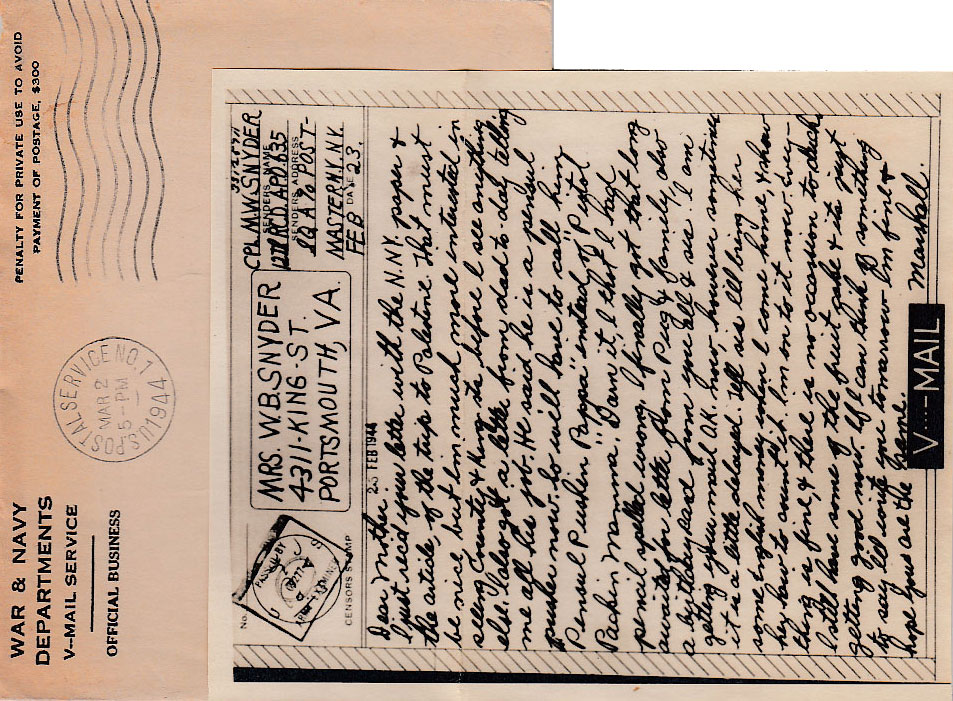 WAR & NAVY
DEPARTMENTS
V---MAIL SERVICE
OFFICIAL BUSINESS
U.S. POSTAL SERVICE NO. 1
MAR 2
5-PM
1944
PENALTY FOR PRIVATE USE TO AVOID
PAYMENT OF POSTAGE, $300
No.
CENSOR'S STAMP
MRS. W.B. SNYDER
4311-KING-ST.
PORTSMOUTH, VA.
CPL M.W. SNYDER
SENDER'S NAME
SENDER'S ADDRESS
MASTER N.Y. N.Y.
FEB 23
DATE
23 FEB 1944
Dear Mother.
I just rec'd your letter with the N.N. paper &
the article, of the trip to Palestine. That must
be nice but I'm much more interested in
seeing County & King sts. before I see anything
else. I also got a letter from dad to-day telling
me all his job. He said he is a pensul
pusher now. So will have to call him
Pensul Pushen Pappa" instead of "Pistol
Packin Momma". Darn it, I think I have
pencil spelled wrong. I finally got that long
awaited for letter from Pug & family, also
a byrthday card from you all I see. I am
getting your mail O.K. now, however sometimes
it is a little delayed. Tell sis I'll bring her
some English money when I come home, & show
her how to count it. I'm on to it now. Every-
thing is fine, & there is no occasion to
I still have some of the fruit cake & it is just
getting good now. Well if I can think of something
to say I'll write you tomarrow. I'm fine &
hope you are the same. Marshall.
V---MAIL